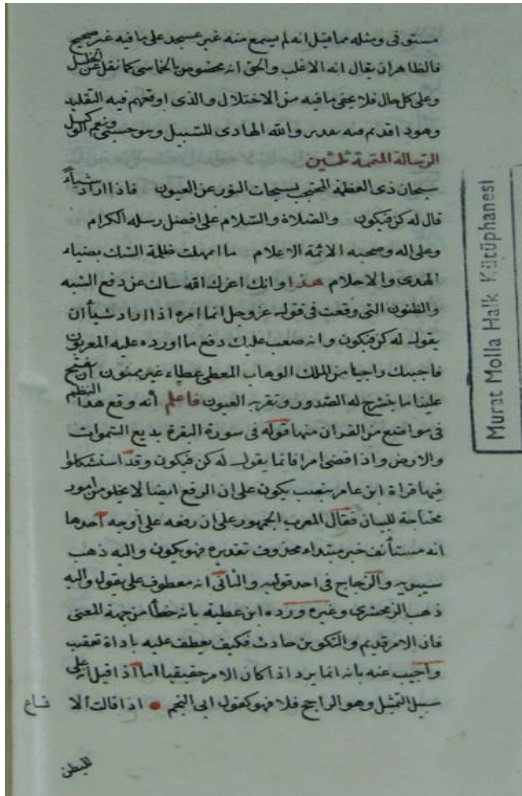 مستوفى ومثله مما قيل انه لم يسمع منه غير عسجد على ما فيه غير صحيح
فالظاهر ان يقال انه الاغلب والحق انه مخصوص بالخماسى كما نقل عن الخليل
وعلى كل حال فلا يخفى ما فيه من الاختلال والذى اوقعهم فيه التقليد
وهو داء قديم فيه والله الهادى للسبيل وهو حسبى ونعم الوكيل
الرسالة المتممة ثلثين
سبحان ذى العظمة المحتجب بسبحات النور عن العيون فاذا اراد شيأ
قال له كن فيكون والصلاة والسلام على افضل رسله الكرام
وعلى اله وصحبه الائمة الاعلام ما انهلت ظلمة الشك بضياء
الهدى والاحلام هذا وانك اعزك الله سالت عن دفع الشبه
والظنون التى وقعت فى قوله عز وجل انما امره اذا اراد شيأ ان
يقول له كن فيكون وانه صعب عليك دفع ما اورده عليه المعربون
فاجبتك راجيا من الملك الوهاب المعطى عطاء غير ممنون ان يفتح
علينا ما يشرح له الصدور وتقر به العيون فاعلم انه وقع هذا النظم
فى مواضع من القران منها قوله فى سورة البقرة بديع السموات
والارض واذا قضى امرا فانما يقول له كن فيكون وقد استشكلوا
فيها قراة ابن عامر بنصب يكون على ان الرفع ايضا لا يخلو من امور
محتاجة للبيان فقال المعرب الجمهور على ان رفعه على اوجه احدها
انه مستأنف خبر مبتداء محذوف تقديره فهو يكون واليه ذهب
سيبويه والزجاج فى احد قوليه والثانى انه معطوف على يقول واليه
ذهب الزمخشرى وغيره ورده ابن عطية بانه خطأ من جهة المعنى
فان الامر قديم والتكوين حادث فكيف يعطف عليه باداة تعقب
واجيب عنه بانه انما يرد اذا كان الامر حقيقيا اما اذا قيل انه على
سبيل التمثيل وهو الراجح فلا فهو كقول ابى النجم اذا قالت الا نساع
للبطن
Murat Molla Halk Kütüphanesi